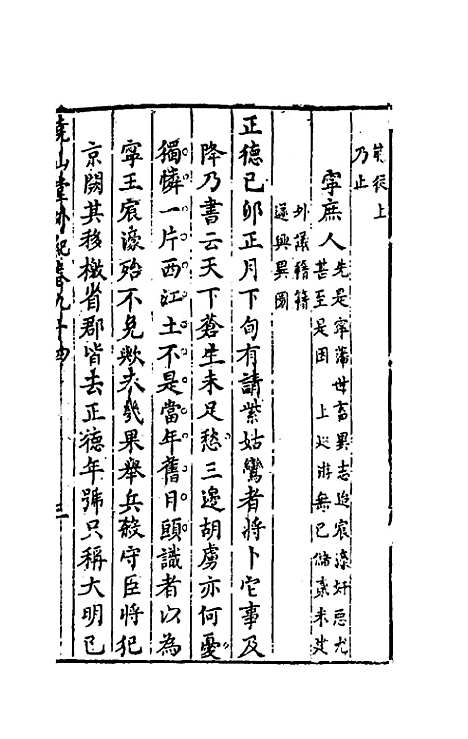 矣後上
乃止
寧庶人先是寧藩世畜異志迨宸濠奸惡尤
甚至是因 上巡游無已儲貳未建
外議籍籍
遂興異圖
正德己卯正月下旬有請紫姑鸞者將卜它事及
降乃書云天下蒼生未足愁三邊胡虜亦何憂
獨憐一片西江土不是當年舊日頭識者以為
寧王宸濠殆不免歟未幾果舉兵殺守臣將犯
京闕其移檄省郡皆去正德年號只稱大明己
堯山堂外紀卷九十四
三